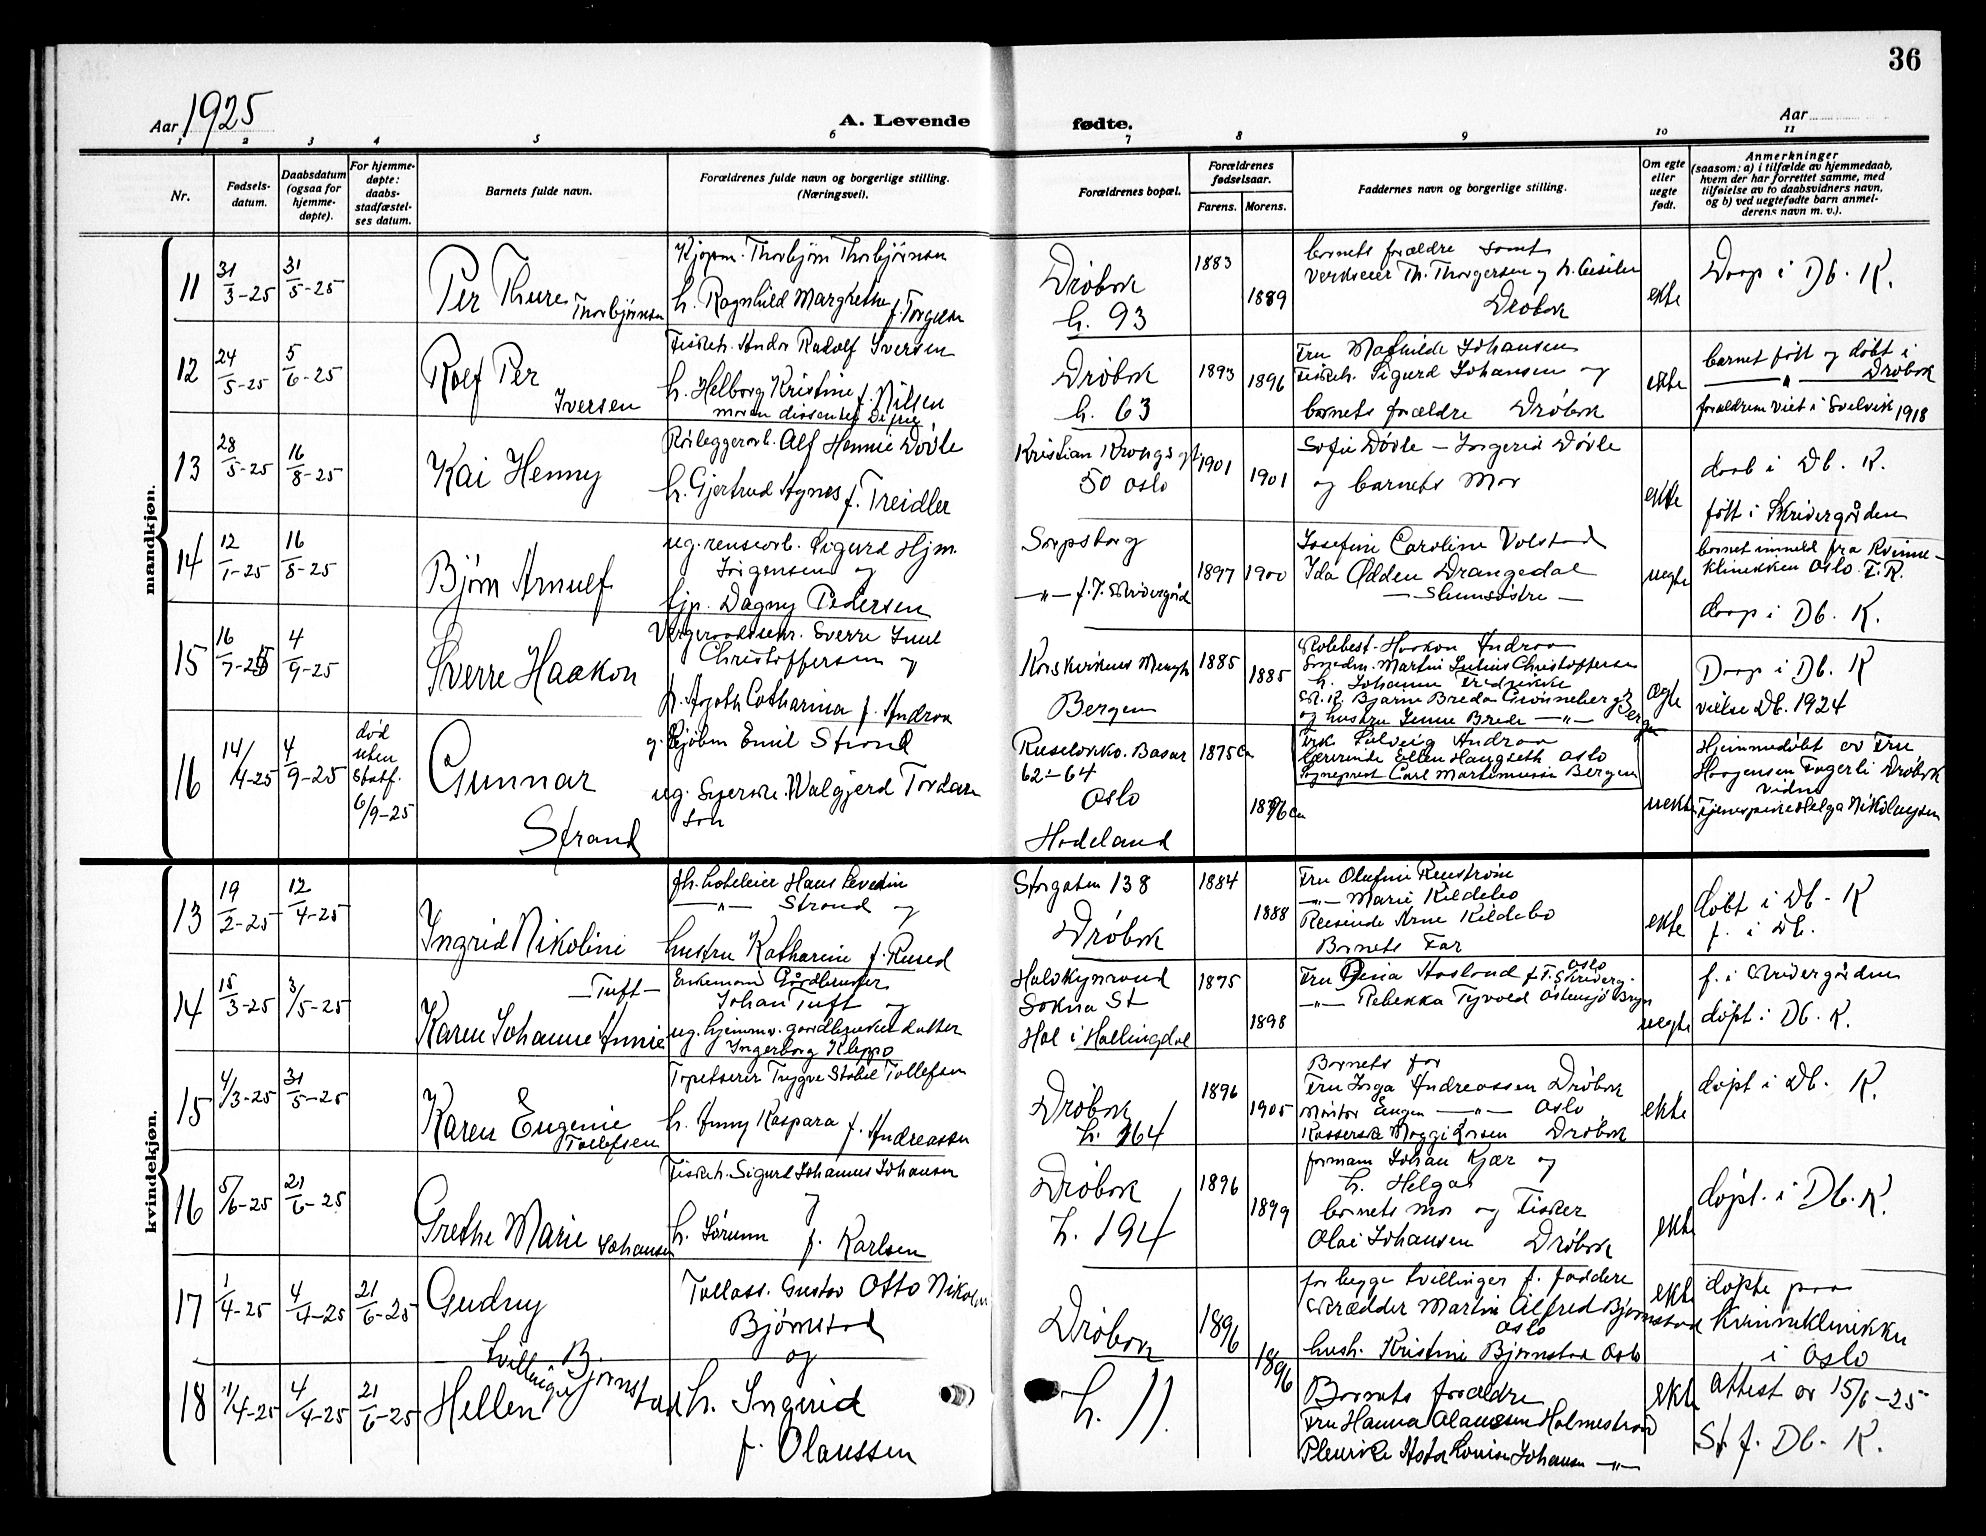 36
Aar 1925
A. Levende
fødte.
Aar
1 2 3 4 5 6 7 8 9 10 11
Nr.
Fødsels-
datum.
Daabsdatum
(ogsaa for
hjemme-
døpte).
For hjemme-
døpte:
daabs-
stadfæstel-
ses datum.
Barnets fulde navn.
Forældrenes fulde navn og borgerlige stilling.
(Næringsvei).
Forældrenes bopæl.
Forældrenes
fødselsaar.
Farens. Morens.
Faddernes navn og borgerlige stilling.
Om egte
eller
uegte
født.
Anmerkninger
(saasom: a) i tilfælde av hjemmedaab,
hvem der har forrettet samme, med
tilføielse av to daabsvidners navn,
og b) ved uegtefødte barn anmel-
derens navn m. v.).
mandkjøn.
11
31/3-25
31/5-25
Per Thure
Thorbjørnsen
Kjøpm. Thorbjørn Thorbjørnsen
h. Ragnhild Margrethe f. Torgersen
Drøbak
h. 93
1883
1889
barnets forældre samt
Verkseier Th. Thorgersen og h.
Drøbak
ekte
Daap i Db. K.
12
24/5-25
5/6-25
Rolf Per
Iversen
Fiskeh. Andor Rudolf Iversen
h. Helborg Kristine f. Nilsen
moren dissenter
Drøbak
h. 63
1893
1896
Fru Mathilde Johansen
Fiskeh. Sigurd Johansen og
barnets forældre Drøbak
ekte
barnet født og døbt i
Drøbak
forældrene viet i Svelvik 1918
13
28/5-25
16/8-25
Kai Henny
Rørleggerarb. Alf Hennie Døvle
h. Gjertrud Agnes f. Treidler
Kristian Krongs gt
50 Oslo
1901
1901
Sofie Døvle – Ingerid Døvle
og barnets Mor
ekte
daab i Db. K.
født i Skrivergården
14
12/1-25
16/8-25
Bjørn Arnulf
ug. rensearb. Sigurd Hjm.
Jørgensen og
tjp. Dagny Pedersen
Sarpsborg
–"– f. T. Skrivergård
1897
1900
Josefine Caroline Volstad
Ida Odden Drangedal
uegte
barnet inmeld fra Kvinne-
klinikken Oslo. F. R.
daap i Db. K.
15
16/7-25
4/9-25
Sverre Haakon
Sverre Juul
Christoffersen og
h. Agoth Catharina f. Andraa
Bergen
1885
1885
Haakon Andraa
Martin Julius Christoffersen
h. Johanne Fredrikke
Bjarne Breda Grønneberg
og hustru Jenne Brede –"– Bergen
Frk. Solveig Andraa
Lærerinde Ellen Haugseth Oslo
Sogneprest Carl Martiniussen Bergen
ægte
Daap i Db. K
vielse Db. 1924
16
14/4-25
4/9-25
død
uten
Statf.
6/9-25
Gunnar
Strand
g. Kjøbm Emil Strand
ug. Syerske. Walgjerd Tordar
son
Ruseløkko. Basar
62–64
Oslo
Hadeland
1875 ca
1896 ca
uekte
Hjemmedøbt av Fru
Haagensen Fagerli Drøbak
vidne
Tjenespike Helga Nikolaysen
kvindekjøn.
13
19/2-25
12/4-25
Ingrid Nikoline
fh. hoteleier Hans Severin
–"– Strand og
hustru Katharine f. Rused
Storgaten 138
Drøbak
1884
1888
Fru Olufine Renstrøm
–"– Marie Kildebo
Reisende Arne Kildebo
Barnets Far
ekte
døbt i Db. K
f. i Db.
14
15/3-25
3/5-25
–Tuft–
Karen Johanne Annie
Enkemand Gårdbruker
Johan Tuft og
ug. hjemmv. gaardbruker datter
Ingerborg Kleppo
Sokna St
Hol i Hallingdal
1875
1898
Oslo
Fru Dina Aasland f. T. Skriverg.
–"– Rebekka Tyvold Østensjø Bryn
uegte
f. i Skrivergården
døpt i Db. K.
15
4/3-25
31/5-25
Karen Eugenie
Tollefsen
Tapetserer Trygve Stabil Tollefsen
h. Anny Kaspara f. Andreassen
Drøbak
h. 164
1896
1905
Barnets far
Fru Inga Andreassen Drøbak
Eugen –"– Oslo
Kasserske Maggi Larsen Drøbak
ekte
døpt i Db. K.
16
5/6-25
21/6-25
Grethe Marie Johansen
Fiskeh. Sigurd Johannes Johansen
og
h. Jørunn f. Karlsen
Drøbak
h. 194
1896
1899
formann Johan Kjær og
h. Helga
barnets mor og Fisker
Olai Johansen Drøbak
ekte
døpt. i Db. K.
17
1/4-25
4/4-25
21/6-25
Gudny
Tvillinger B.
Bjørnstad
Tollass. Gustav Otto Nikolai
Bjørnstad
og
h. Ingrid
f. Olaussen
Drøbak
h. 11.
1896
1896
for begge tvillinger f. faddere
Skrædder Martin Alfred Bjørnstad
Oslo
hush. Kristine Bjørnstad Oslo
Barnets forældre
Fru Hanna Olaussen Holmestrand
Pleierske Asta Louise Johansen –"–
ekte
døpte paa
Kvinneklinikken
i Oslo
attest av 15/6-25
St. f. Db. K.
18
1/4-25
4/4-25
21/6-25
Hellen
ekte